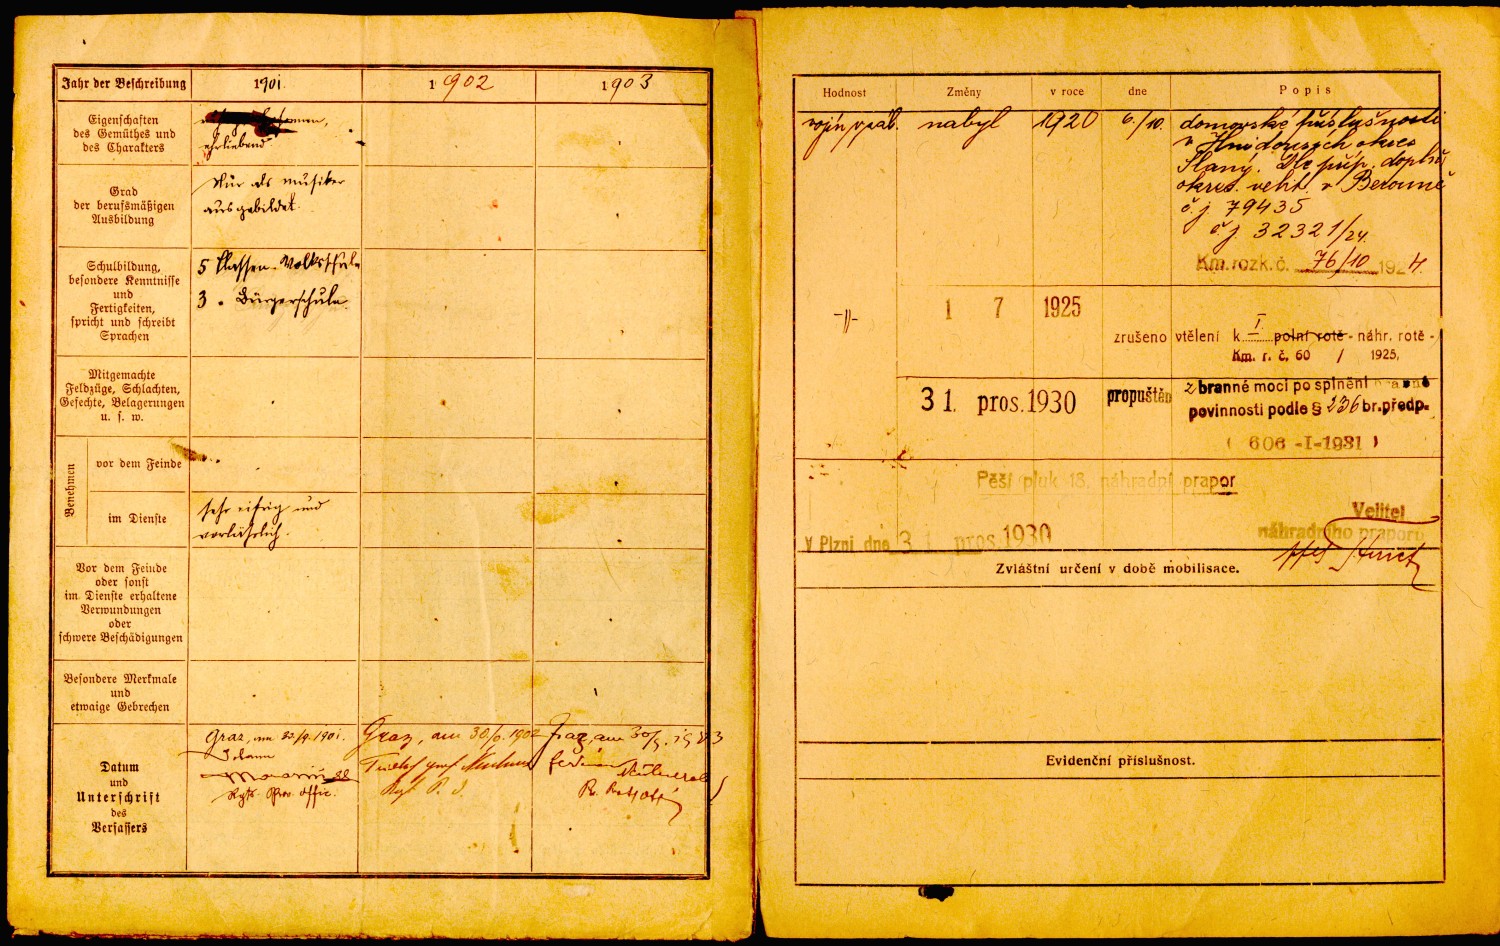 Jahr der Beschreibung
1901.
1902
1903
Eigenschaften
des Gemüthes und
des Charakters
ehrliebend
Grad
der berufsmäßigen
Ausbildung
Nur als Musiker
ausgebildet.
Schulbildung,
besondere Kenntnisse
und
Fertigkeiten,
spricht und schreibt
Sprachen
5 Klassen Volksschule
3 " Bürgerschule
Mitgemachte
Feldzüge, Schlachten,
Gefechte, Belagerungen
u. s. w.
Benehmen
vor dem Feinde
im Dienste
sehr eifrig und
verläßlich.
Vor dem Feinde
oder sonst
im Dienste erhaltene
Verwundungen
oder
schwere Beschädigungen
Besondere Merkmale
und
etwaige Gebrechen
Datum
und
Unterschrift
des
Verfassers
Graz, am 1901.
Johann
Rgts. Prov. Offic.
Graz, am 30/9. 1902
Graz, am 30/9. 1903
Hodnost
Změny
v roce
dne
Popis
nabyl
1920
6./10.
domovské příslušnosti
v Hnidousích okres
Slaný. Dle příp. dopl.
okres. velit. v Berouně
č.j. 79435
č.j. 32321/24.
Km. rozk. č. 76/10 1924.
-//-
1 7 1925
zrušeno vtělení k I. polní rotě - náhr. rotě -
Km. r. č. 60 / 1925,
31. pros. 1930
propuštěn
z branné moci po splnění branné
povinnosti podle § 236 br. předp.
( 606 -I-1931 )
Pěší pluk 18. náhradní prapor
V Plzni dne 31. pros. 1930
Velitel
náhradního praporu
Zvláštní určení v době mobilisace.
Evidenční příslušnost.